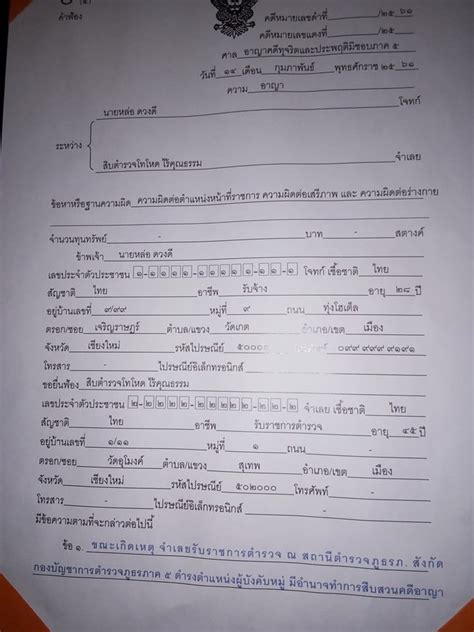 คำฟ้อง
คดีหมายเลขดำที่ /๒๕ ๖๑
คดีหมายเลขแดงที่ /๒๕
ศาล อาญาคดีทุจริตและประพฤติมิชอบภาค ๕
วันที่ ๑๔ เดือน กุมภาพันธ์ พุทธศักราช ๒๕ ๖๑
ความ อาญา
นายหล่อ ดวงดี โจทก์
ระหว่าง
สิบตำรวจโทโหด ไร้คุณธรรม จำเลย
ข้อหาหรือฐานความผิด ความผิดต่อตำแหน่งหน้าที่ราชการ ความผิดต่อเสรีภาพ และ ความผิดต่อร่างกาย
จำนวนทุนทรัพย์ - บาท - สตางค์
ข้าพเจ้า นายหล่อ ดวงดี
เลขประจำตัวประชาชน ๑-๑๑๑๑-๑๑๑๑๑-๑๑-๑ โจทก์ เชื้อชาติ ไทย
สัญชาติ ไทย อาชีพ รับจ้าง อายุ ๒๘ ปี
อยู่บ้านเลขที่ ๙/๙๙ หมู่ที่ ๙ ถนน ทุ่งโฮเต็ล
ตรอก/ซอย เจริญราษฎร์ ตำบล/แขวง วัดเกต อำเภอ/เขต เมือง
จังหวัด เชียงใหม่ รหัสไปรษณีย์ ๕๐๐๐๐ ๐๙๙ ๙๙๙ ๙๑๙๑
โทรสาร - ไปรษณีย์อิเล็กทรอนิกส์ -
ขอยื่นฟ้อง สิบตำรวจโทโหด ไร้คุณธรรม
เลขประจำตัวประชาชน ๒-๒๒๒๒-๒๒๒๒๒-๒๒-๒ จำเลย เชื้อชาติ ไทย
สัญชาติ ไทย อาชีพ รับราชการตำรวจ อายุ ๔๕ ปี
อยู่บ้านเลขที่ ๑/๑๑ หมู่ที่ ๑ ถนน -
ตรอก/ซอย วัดอุโมงค์ ตำบล/แขวง สุเทพ อำเภอ/เขต เมือง
จังหวัด เชียงใหม่ รหัสไปรษณีย์ ๕๐๒๐๐๐ โทรศัพท์ -
โทรสาร - ไปรษณีย์อิเล็กทรอนิกส์ -
มีข้อความตามที่จะกล่าวต่อไปนี้
ข้อ ๑. ขณะเกิดเหตุ จำเลยรับราชการตำรวจ ณ สถานีตำรวจภูธรภ. สังกัด
กองบัญชาการตำรวจภูธรภาค ๕ ดำรงตำแหน่งผู้บังคับหมู่ มีอำนาจทำการสืบสวนคดีอาญา